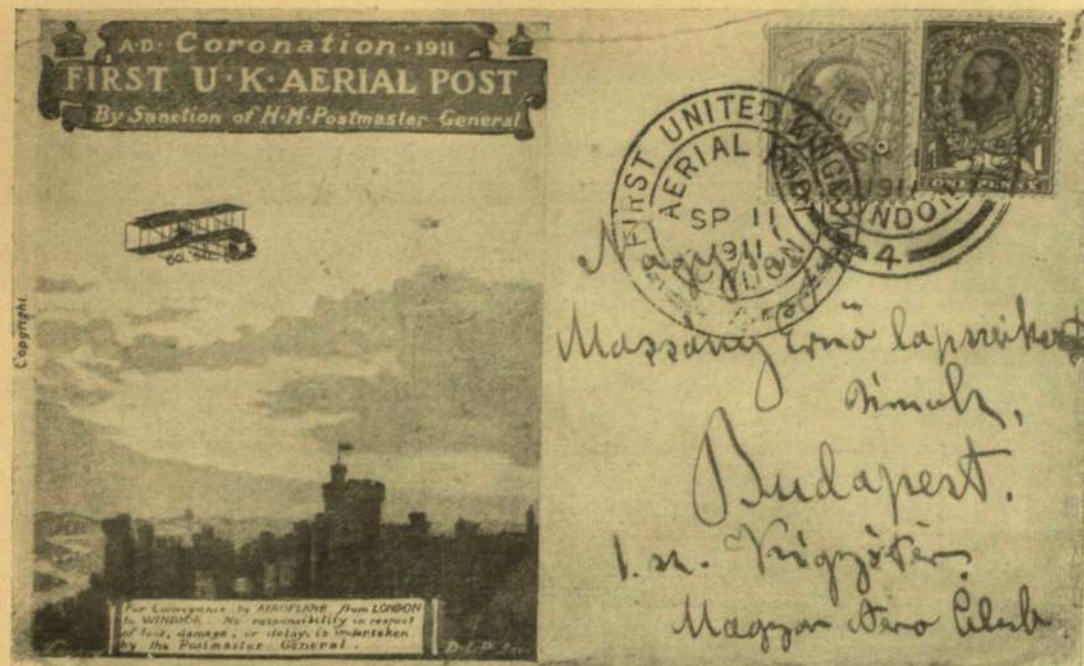 A·D· Coronation · 1911
FIRST U·K·AERIAL POST
By Sanction of H·M·Postmaster General
Copyright.
For Conveyance by AEROPLANE from LONDON
to WINDSOR. No responsibility in respect
of loss, damage, or delay, is undertaken
by the Postmaster General.
FIRST UNITED KINGDOM
AERIAL POST
SP 11
1911
LONDON
1911
LONDON
4
1 1
ONE PENNY
Nagys.
Massány Ernő lapszerkesztő
Budapest.
1. sz. Kígyótér.
Magyar Aero Club